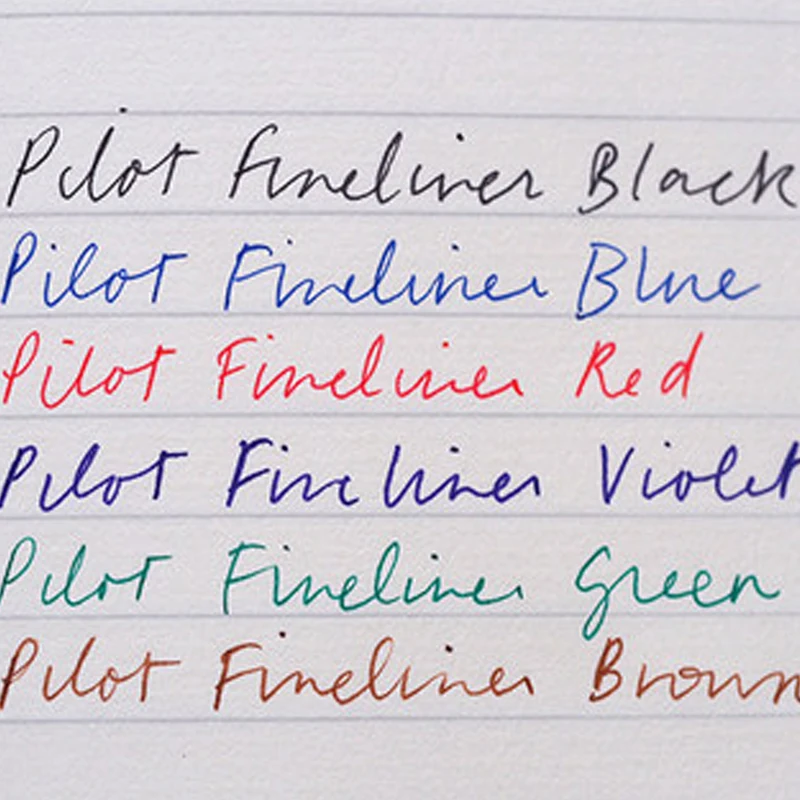 Pilot Fineliner Black
Pilot Fineliner Blue
Pilot Fineliner Red
Pilot Fineliner Violet
Pilot Fineliner Green
Pilot Fineliner Brown